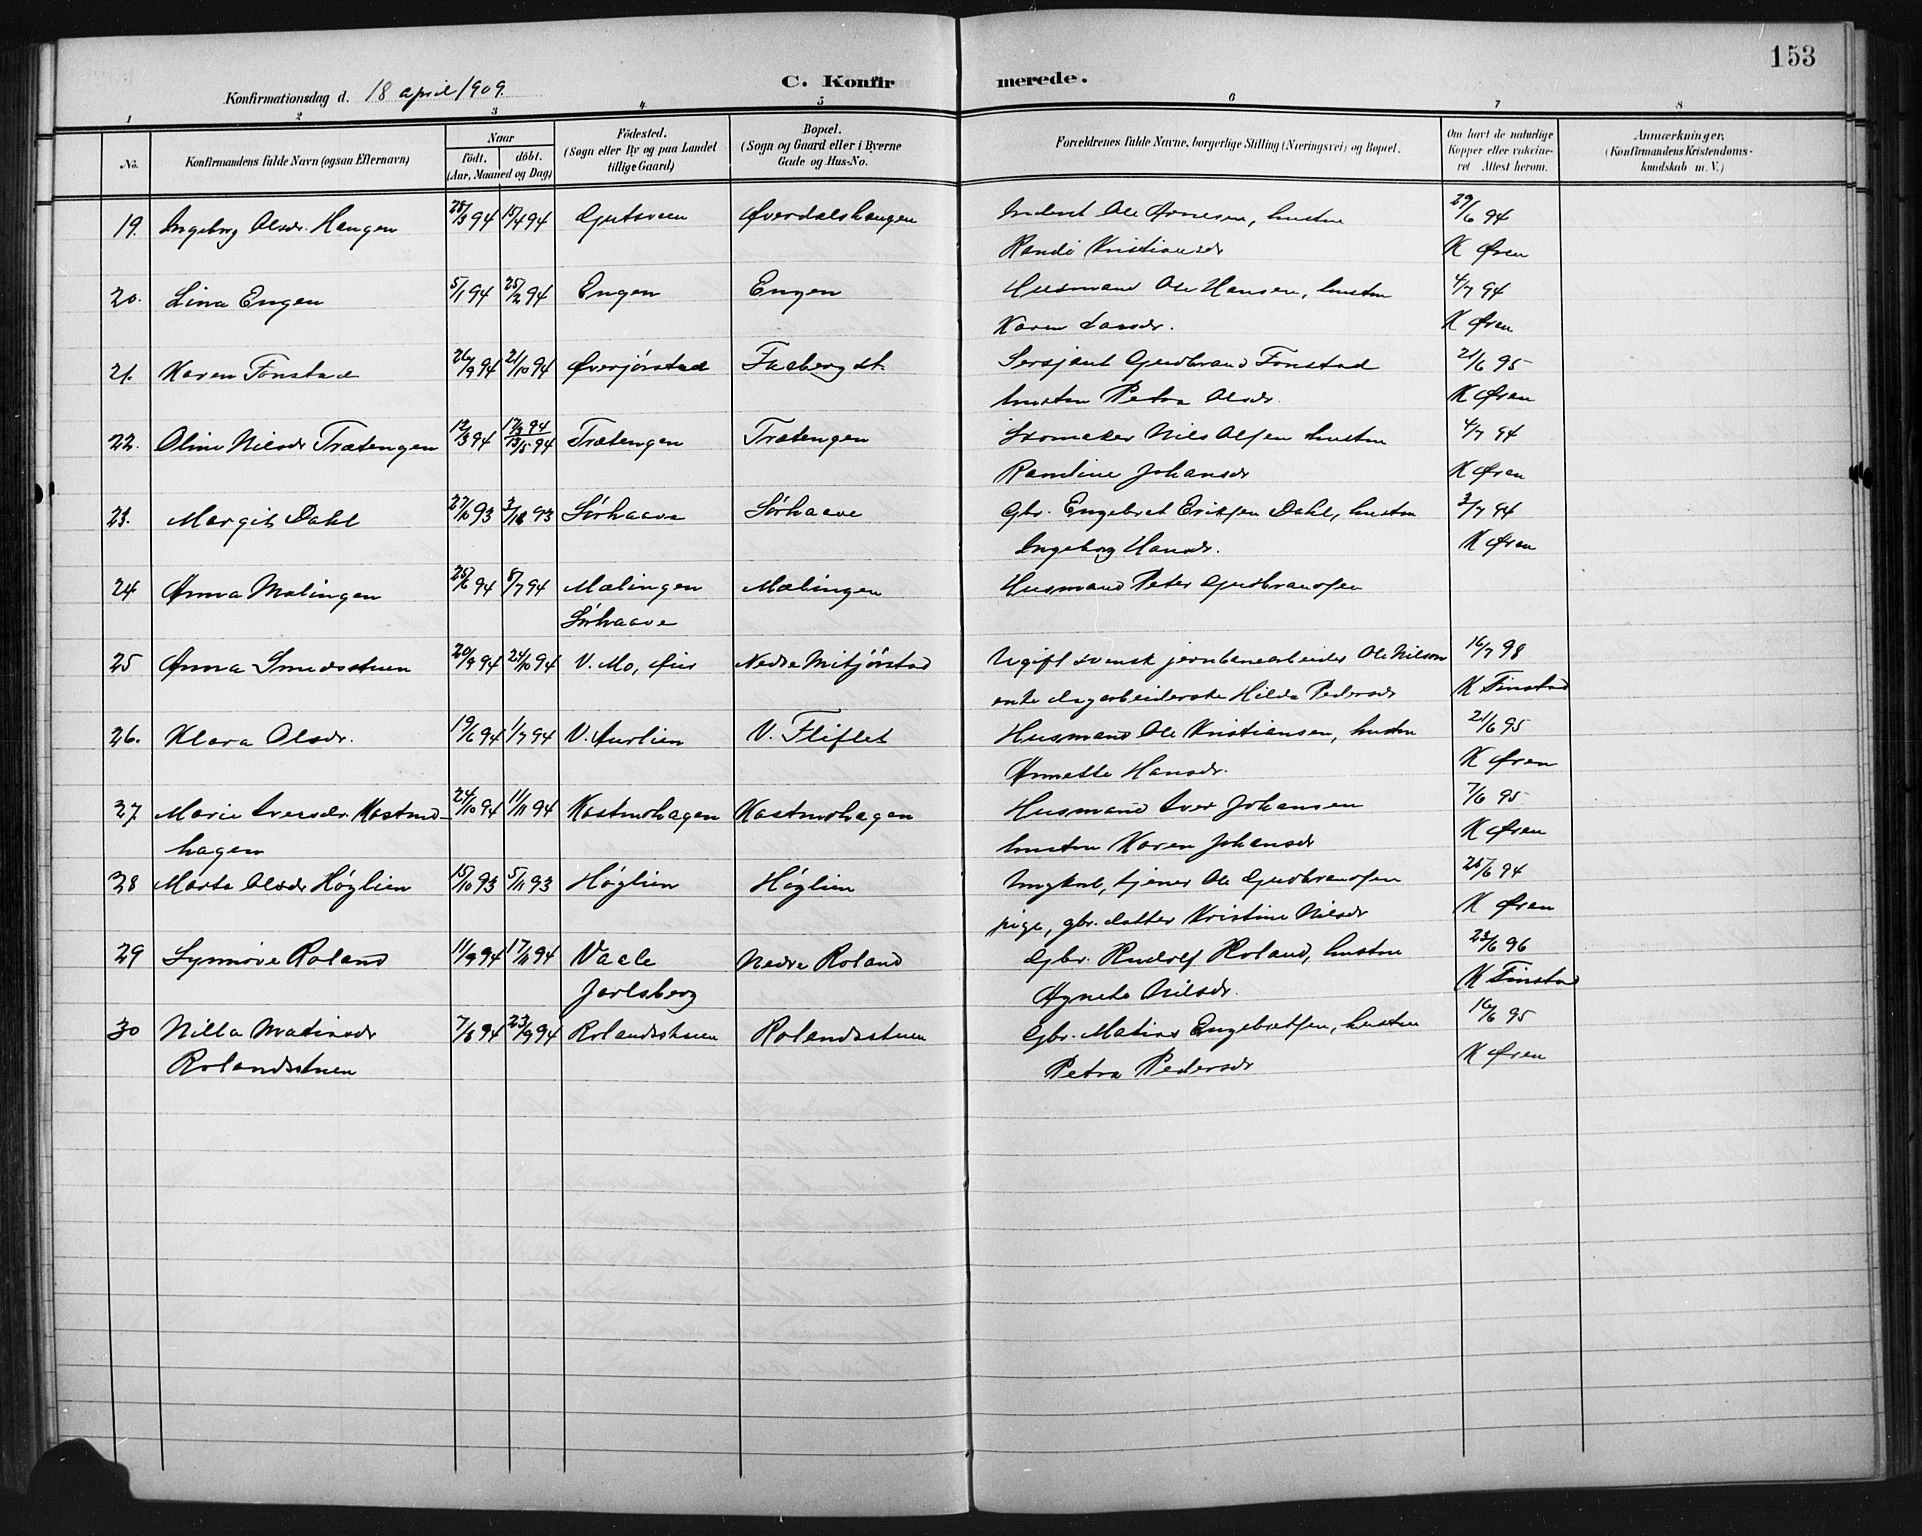 153
Konfirmationsdag d. 18 april 1909.
C. Konfirmerede.
1 2 3 4 5 6 7 8
No.
Konfirmandens fulde Navn (ogsaa Efternavn)
Naar
födt. döbt.
(Aar, Maaned og Dag)
Födested.
(Sogn eller By og paa Landet
tillige Gaard)
Bopæl.
(Sogn og Gaard eller i Byerne
Gade og Hus-No.
Forældrenes fulde Navne, borgerlige Stilling (Næringsvei) og Bopæl.
Om havt de naturlige
Kopper eller vakcine-
ret Attest herom.
Anmærkninger.
(Konfirmandens Kristendoms-
kundskab m. V.)
19. Ingeborg Olsdr. Haugen 28/3 94 15/4 94 Gutsveen Øverdalshaugen Inderst Ole Arnesen, hustru 29/6 94
Randi Kristiansdr K Øren
20. Lina Engen 5/1 94 25/2 94 Engen Engen Husmand Ole Hansen, hustru 4/7 94
Karen Larsdr. K Øren
21. Karen Fonstad 26/9 94 21/10 94 Øverjørstad Faaberg st. Sersjant Gudbrand Fonstad 21/6 95
hustru Petra Olsdr. K Øren
22. Oline Nilsdr Trætengen 12/3 94 17/3 94 13/5 94 Trætengen Trætengen Skomaker Nils Olsen hustru 4/7 94
Randine Johansdr K Øren
23. Margit Dahl 27/10 93 3/12 93 Sørhaave Sørhaave Gbr. Engebret Eriksen Dahl, hustru 3/7 94
Ingeborg Hansdr. K Øren
24 Anna Mælingen 25/6 94 8/7 94 Mælingen Mælingen Husmand Peter Gudbrandsen
Sørhaave
25 Anna Smedsstuen 20/9 94 24/10 94 V. Mo, Øier Nedre Mitjørstad Ugift svensk jernbanearbeider Ole Nilson 16/7 98
enke dagarbeiderske Hilda Pedersdr K Finstad
26. Klara Olsdr. 19/6 94 1/7 94 V. Aurlien V. Fliflet Husmand Ole Kristiansen, hustru 21/6 95
Annette Hansdr. K Øren
27 Marie Iversdr. Kastmo- 24/10 94 11/11 94 Kastmohagen Kastmohagen Husmand Iver Johansen 7/6 95
hagen hustru Karen Johansdr K Øren
28 Marte Olsdr Høglien 15/10 93 5/11 93 Høglien Høglien Ungkarl, tjener Ole Gudbrandsen 25/6 94
pige, gbr. datter Kristine Nilsdr K Øren
29 Synnøve Roland 11/9 94 17/11 94 Vaale Nedre Roland Gbr. Rudolf Roland, hustru 23/6 96
Jarlsberg Agnete Nilsdr. K Finstad
30 Nilla Matinsdr 7/8 94 23/9 94 Rolandsstuen Rolandsstuen Gbr. Matins Engebretsen, hustru 16/6 95
Rolandsstuen Petra Pedersdr K Øren